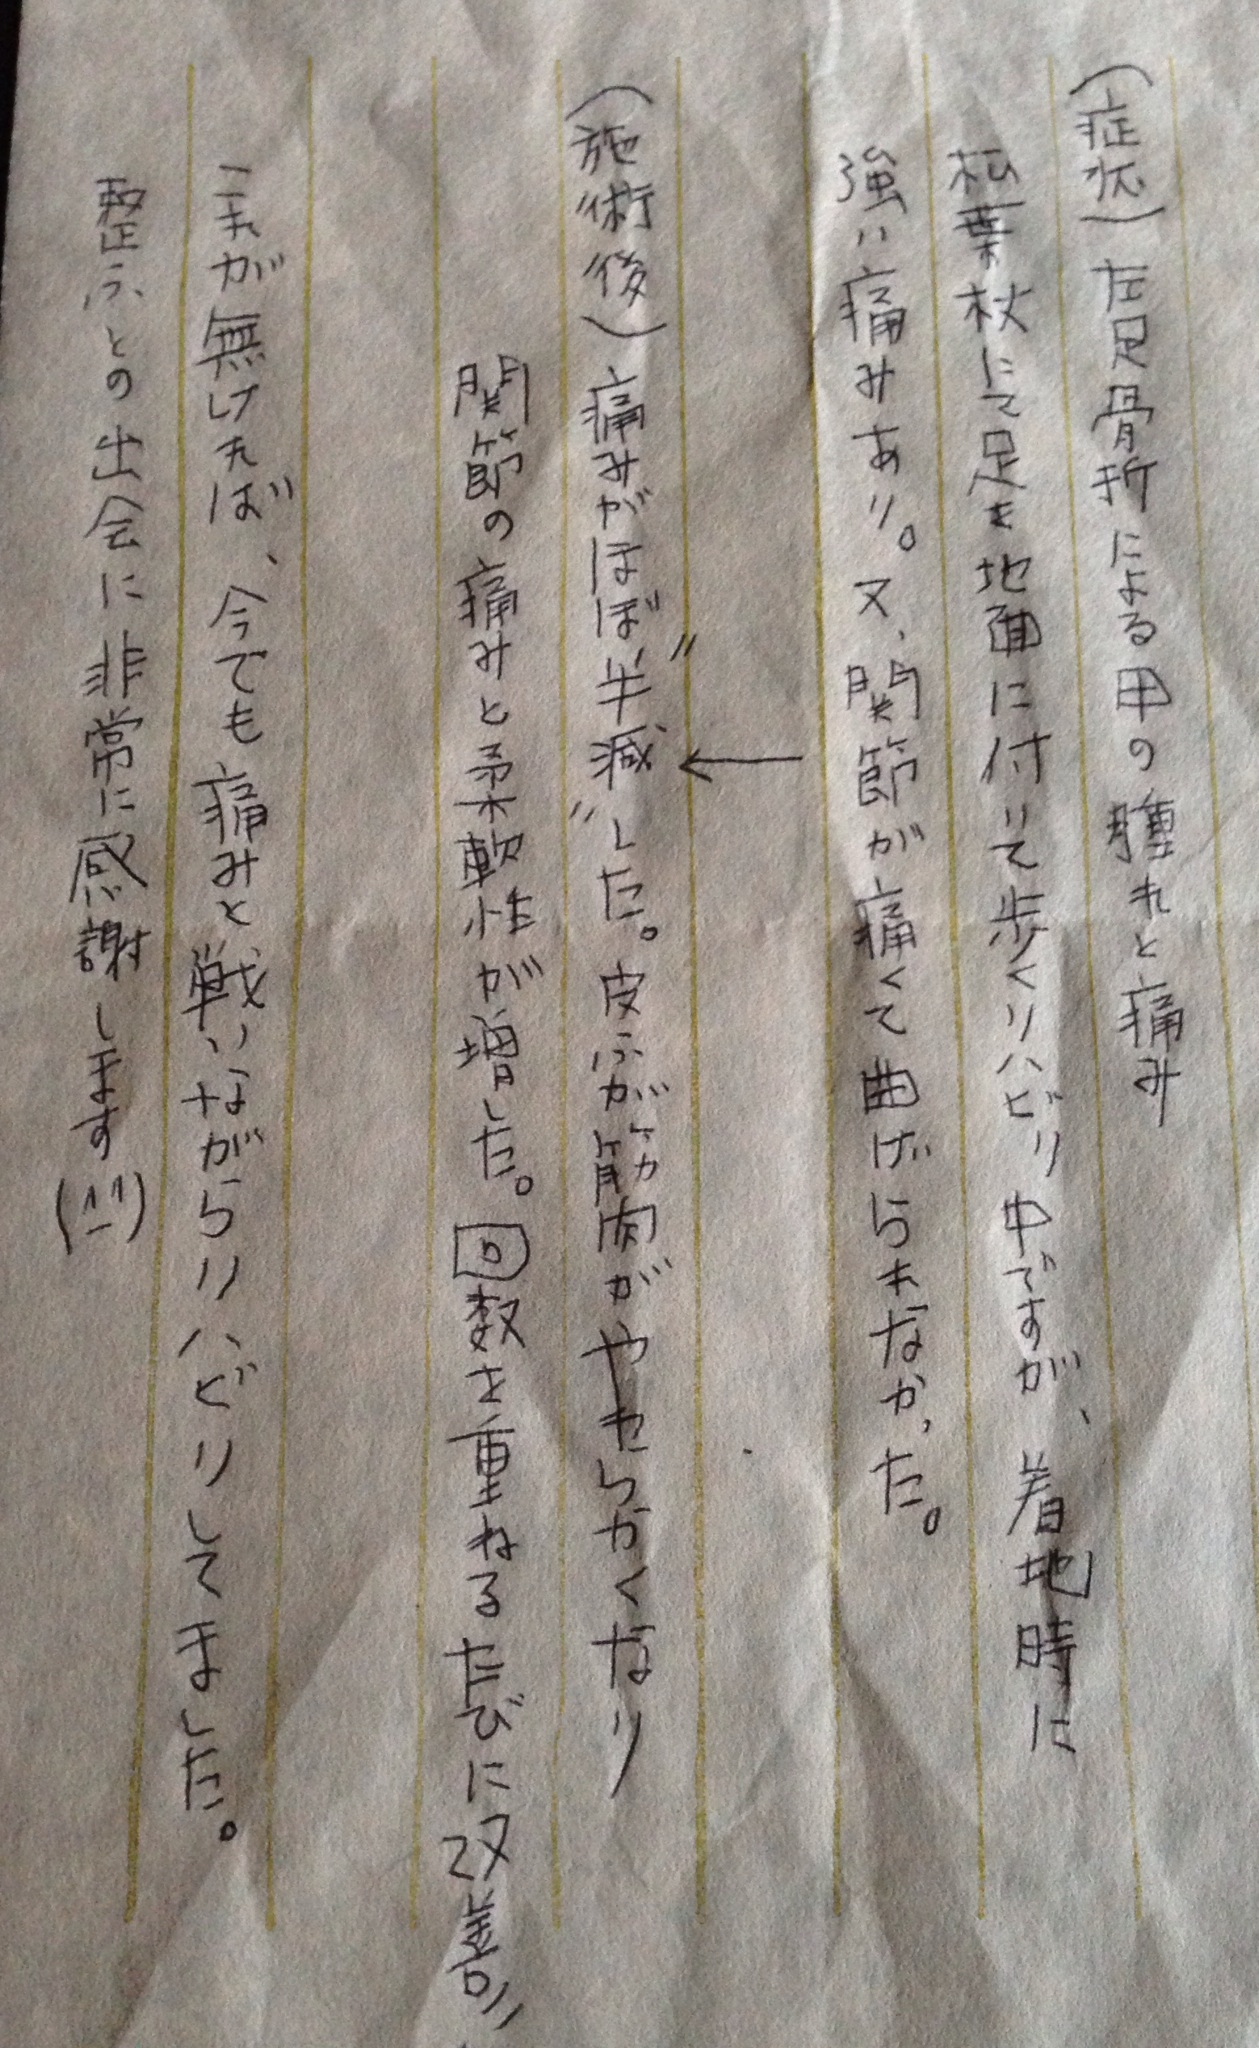 (症状)左足骨折による甲の腫れと痛み
松葉杖にて足を地面に付けて歩くリハビリ中ですが、着地時に
強い痛みあり。又、関節が痛くて曲げられなかった。
↓
(施術後)痛みがほぼ"半減"した。皮ふが筋肉がやわらかくなり
関節の痛みと柔軟性が増した。回数を重ねるたびに改善!!
これが無ければ、今でも痛みと戦いながらリハビリしてました。
整ふとの出会いに非常に感謝します(^^)